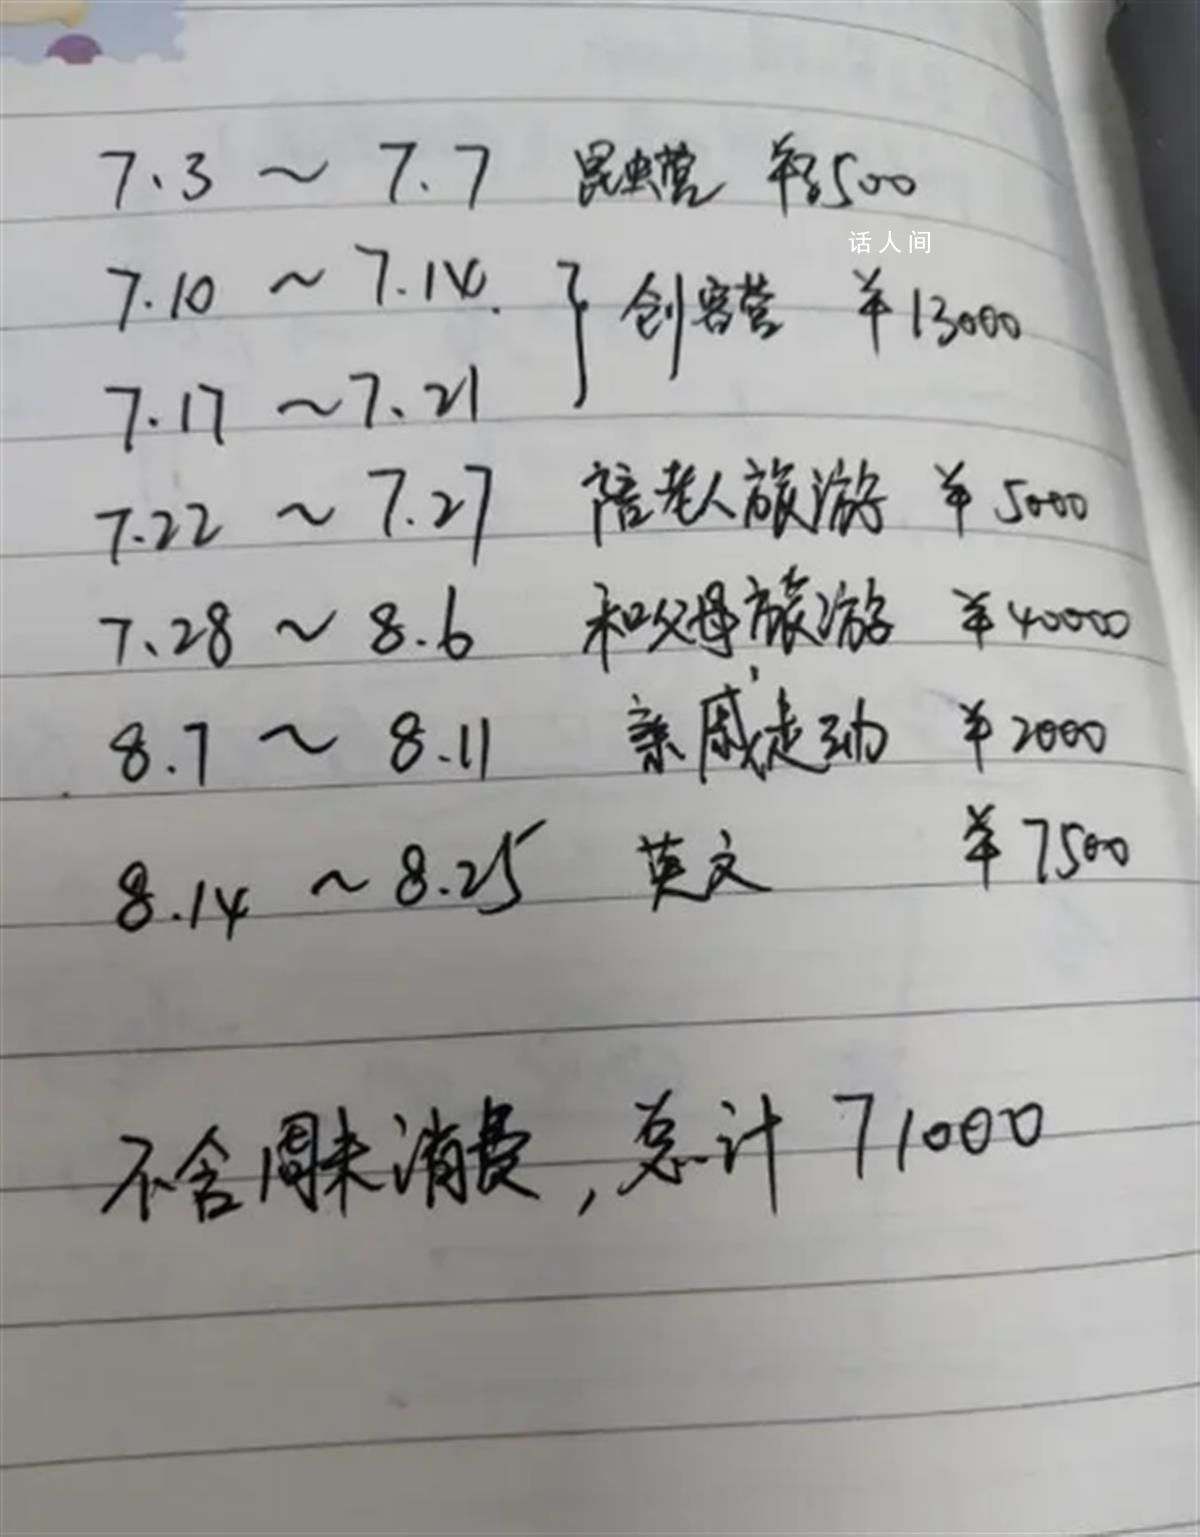 7.3 ~ 7.7 昆虫营 ¥3500
话人间
7.10 ~ 7.14. } 创客营 ¥13000
7.17 ~ 7.21
7.22 ~ 7.27 陪老人旅游 ¥5000
7.28 ~ 8.6 和父母旅游 ¥40000
8.7 ~ 8.11 亲戚走动 ¥2000
8.14 ~ 8.25 英文 ¥7500
不含周末消费，总计 71000